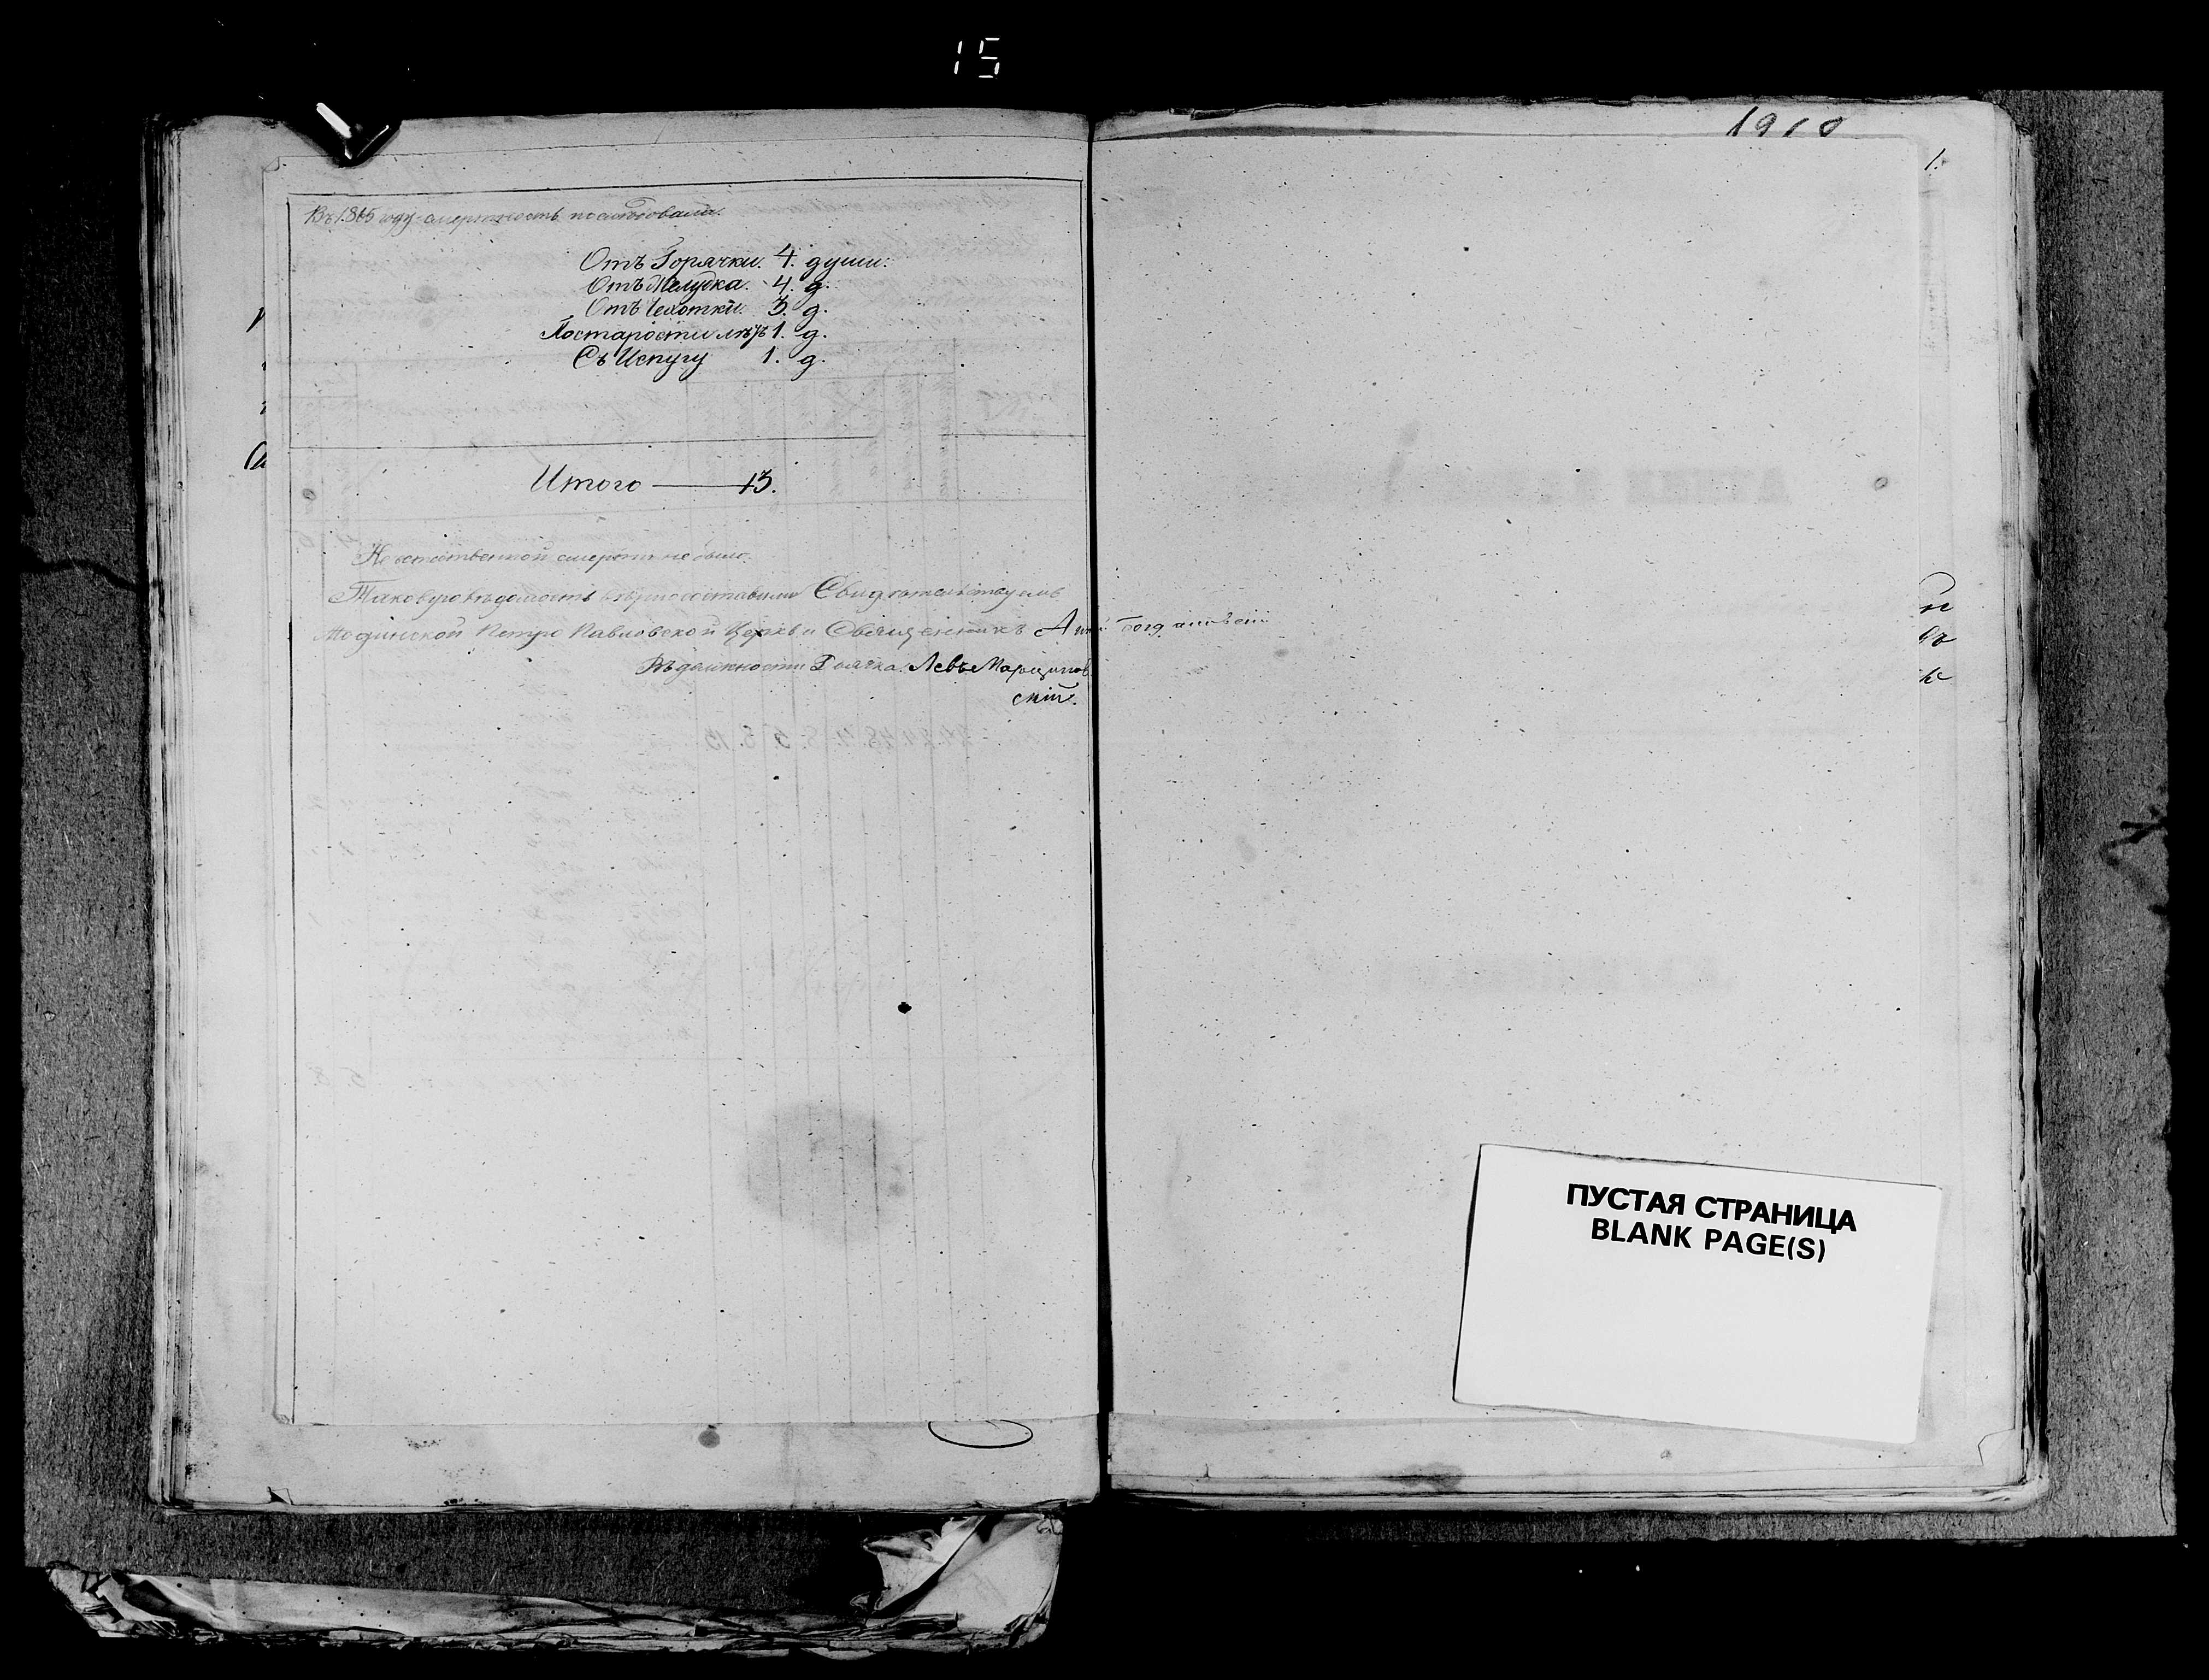 15
1910
1.
Въ 1865 году смертность послѣдовала.
Отъ Горячки. 4. души.
Отъ Желудка. 4. д.
Отъ Чехотки. 3. д.
По старости лѣтъ 1. д.
Съ Испугу 1. д.
Итого — 13.
Неестественной смерти не было.
Таковую вѣдомость вѣрно составили Свидѣтельствуемъ
Петро Павловской Церкви Священникъ
Въ должности Дьячка Левъ Марцинов
скій.
ПУСТАЯ СТРАНИЦА
BLANK PAGE(S)